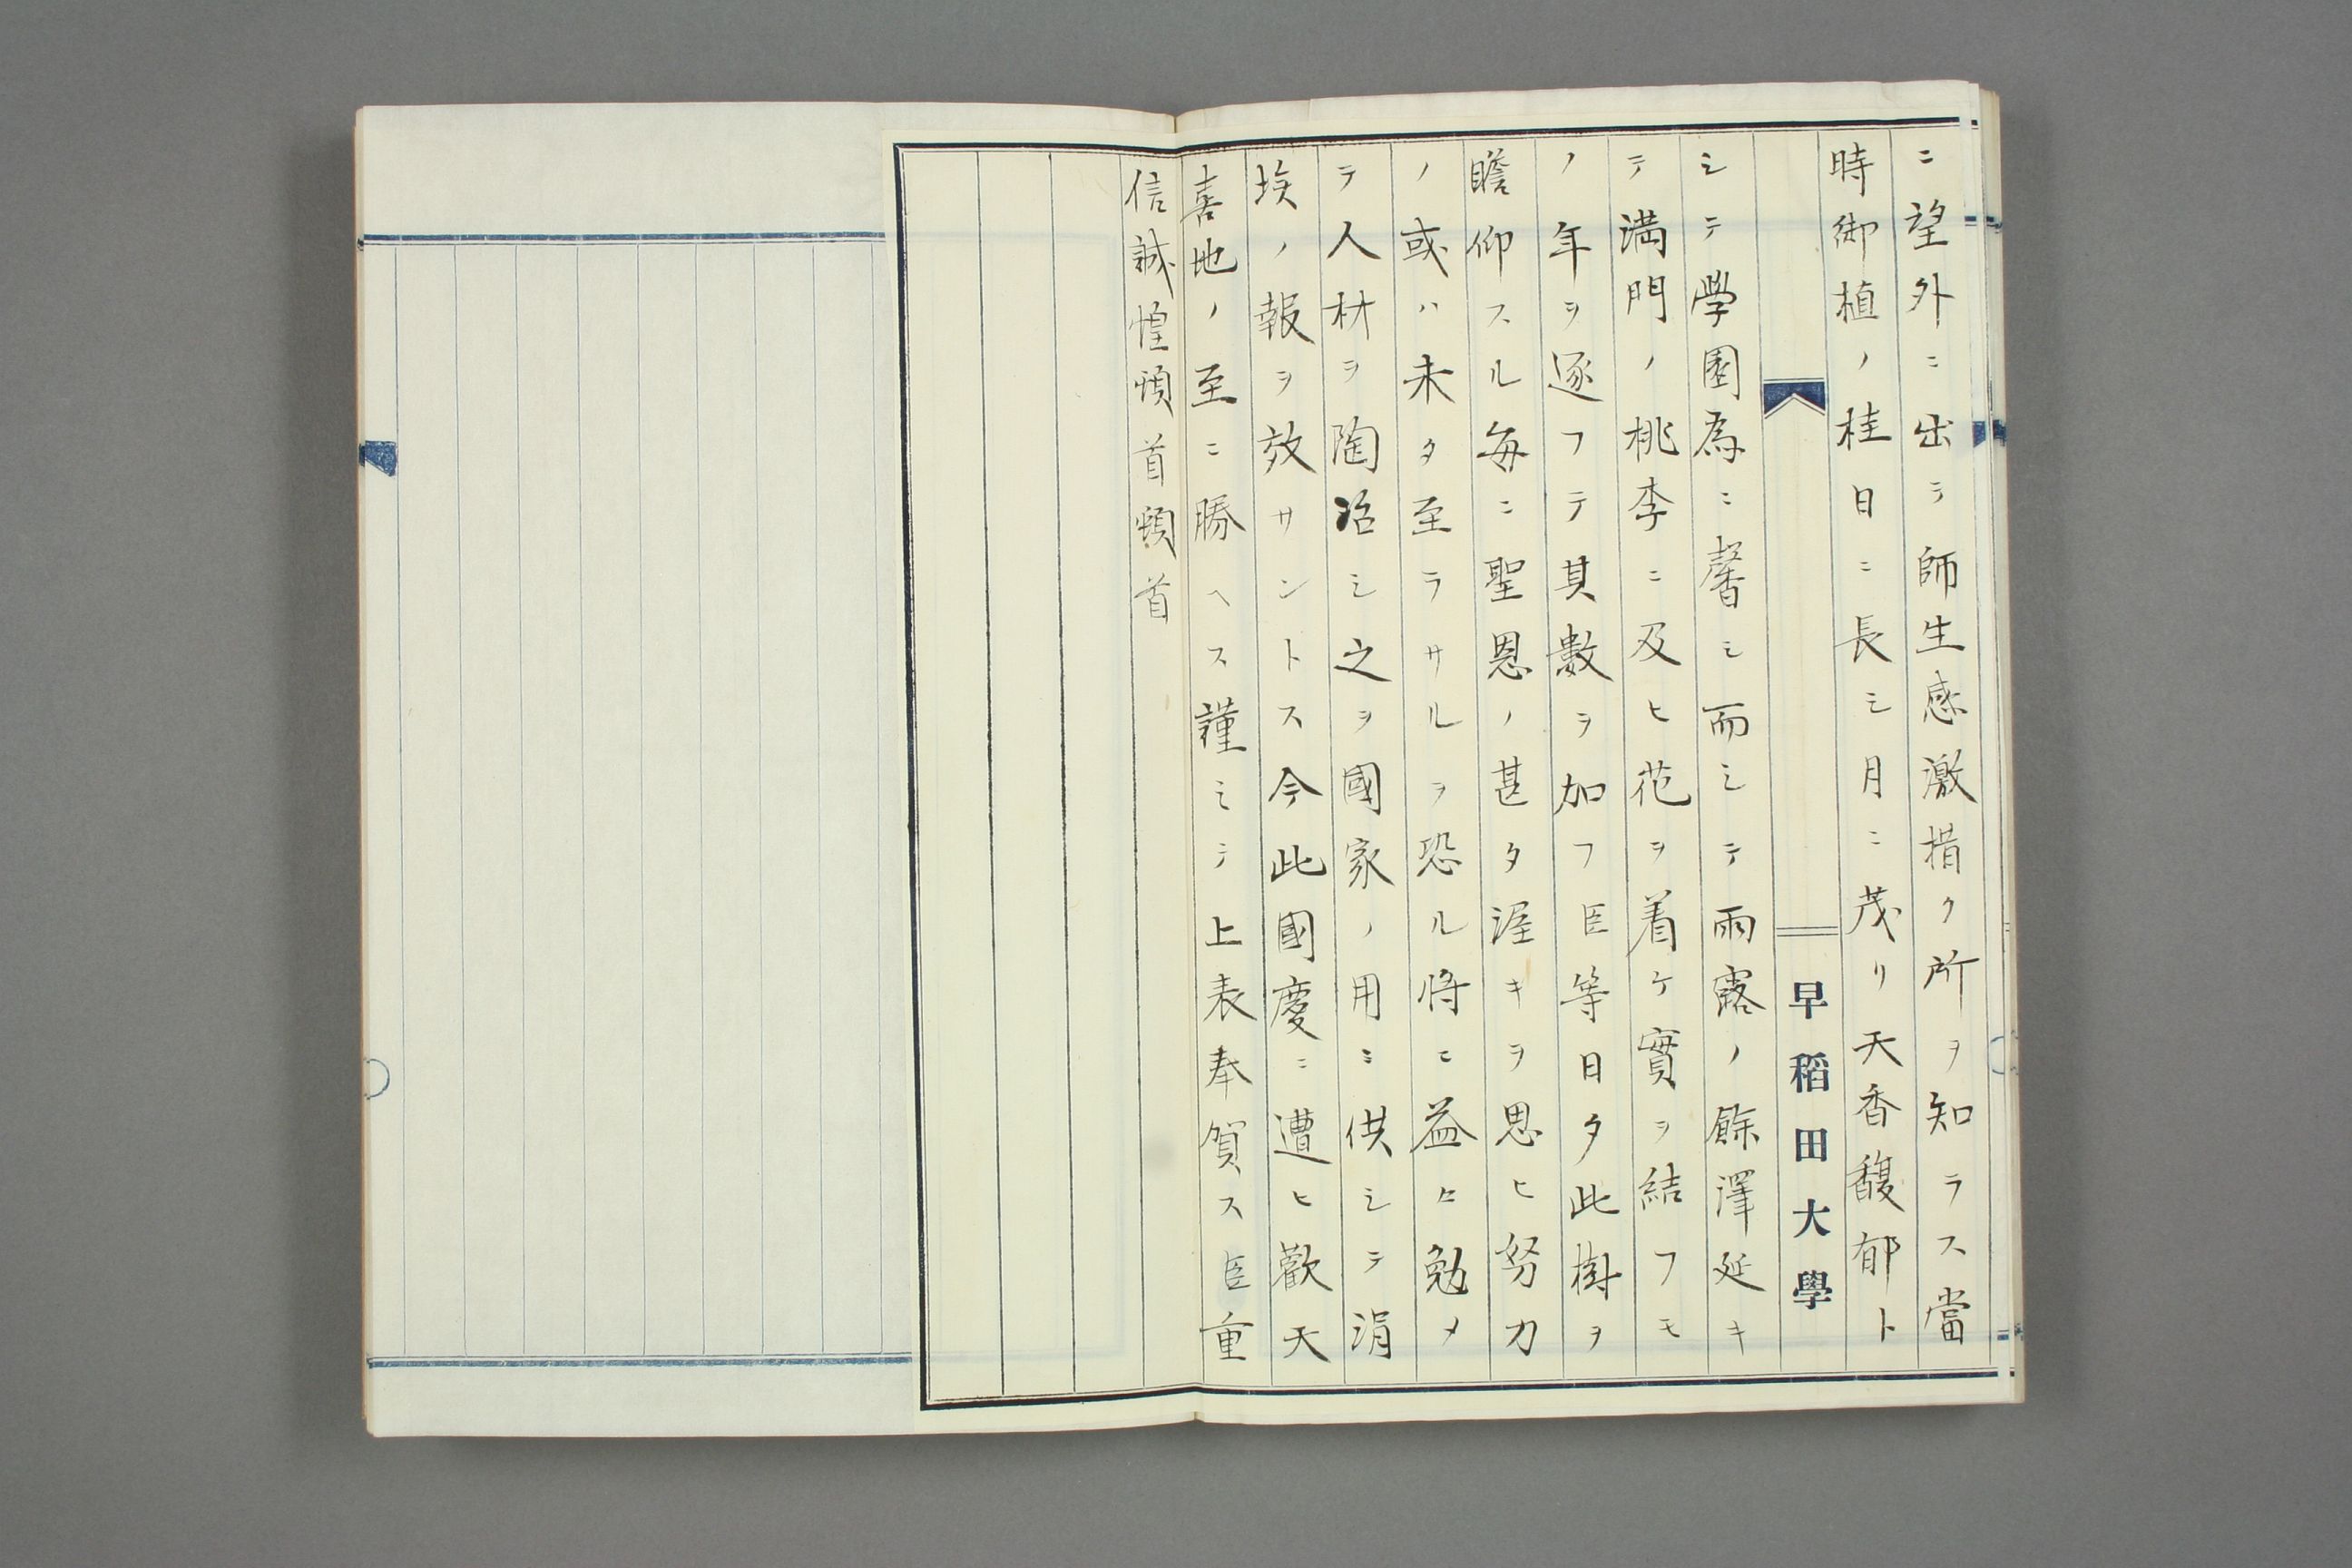 ニ望外ニ出テ師生感激措ク所ヲ知ラス當
時御植ノ桂日ニ長シ月ニ茂リ天香馥郁ト
早稲田大學
シテ學園為ニ馨シ而シテ雨露ノ餘澤延キ
テ満門ノ桃李ニ及ヒ花ヲ着ケ實ヲ結フモ
ノ年ヲ逐フテ其數ヲ加フ臣等日夕此樹ヲ
瞻仰スル毎ニ聖恩ノ甚タ渥キヲ思ヒ努力
ノ或ハ未タ至ラサルヲ恐ル将ニ益ヒ勉メ
テ人材ヲ陶冶シ之ヲ國家ノ用ニ供シテ涓
埃ノ報ヲ效サントス今此國慶ニ遭ヒ歡天
喜地ノ至ニ勝ヘス謹ミテ上表奉賀ス臣重
信誠惶頓首頓首